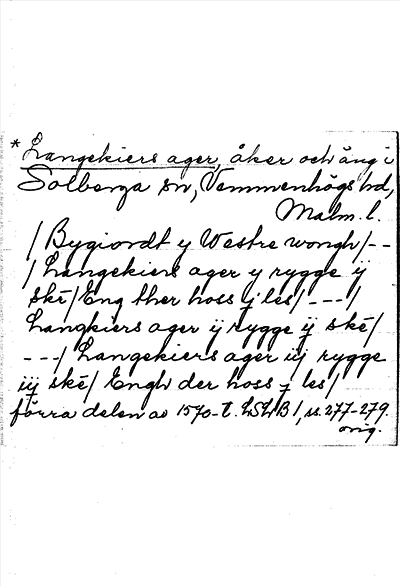 * Langekiers ager, åker och äng i
Solberga sn, Vemmenhögs hd,
Malm. l.
/ Bygiordt y Westre wongh / - -
/ Langekiers ager y rygge ÿ
skē / Eng ther hoss j les / - - - /
Langkiers ager ÿ rygge ÿ skē /
- - - / Langekiers ager iij rygge
iij skē / Engh der hoss j les /
förra delen av 1570-t. LSLB 1, ss. 277-279.
orig.